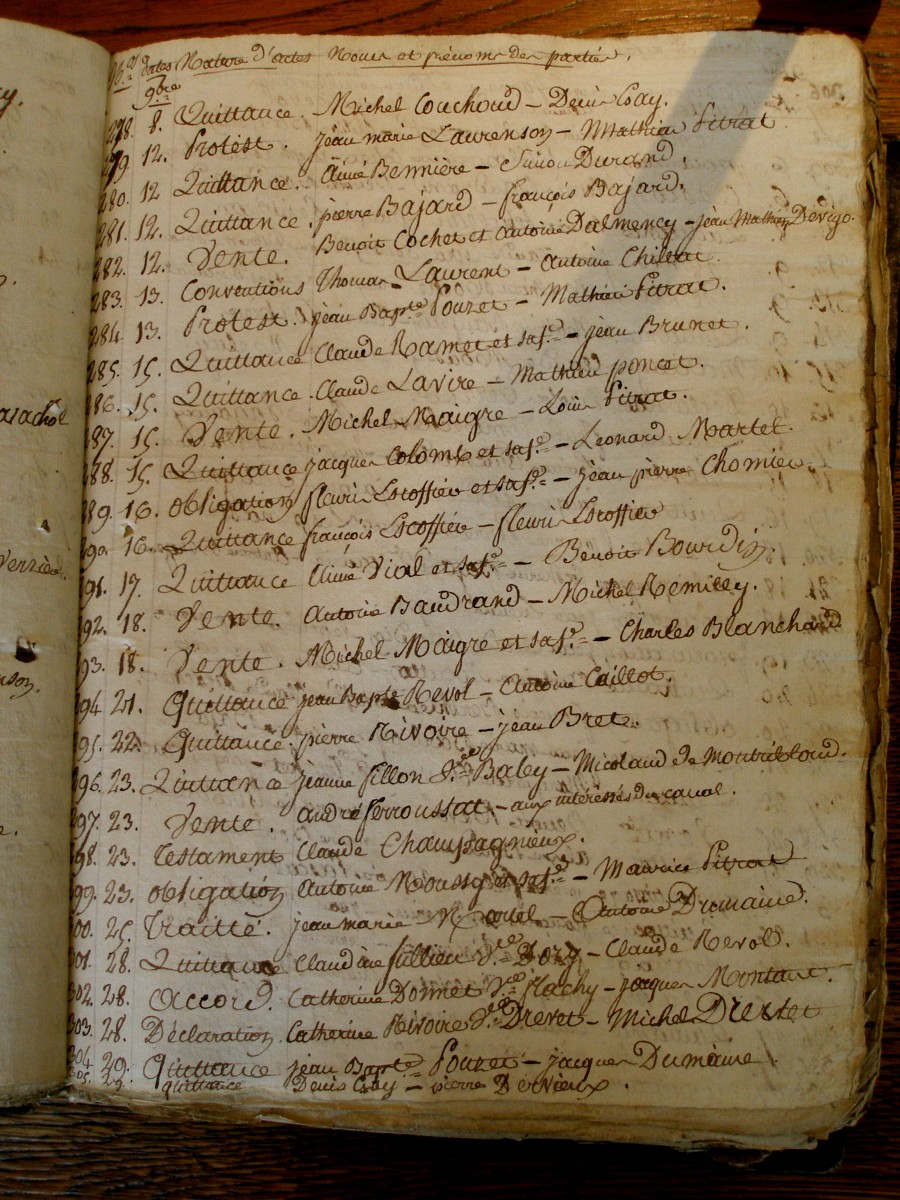 dates Nature d'actes Noms et prénoms des parties.
9bre
278. 8. Quittance. Michel Couchoud - Denis Esay.
279. 12. Protest. jean marie Laurenson - Mathieu Pitrat
280. 12 Quittance. Aimé Bennière - Simon Durand.
281. 12. Quittance. pierre Bajard - françois Bajard.
282. 12. Vente. Benoit Cochet et Antoine Dalmency - jean Mathieu Devigo.
283. 13. Conventions Thomas Laurent - Antoine
284. 13. Protest. jean Bapte Pouzet - Mathieu Pitrat.
285. 15. Quittance Claude Ramet et sa fe - jean Brunet.
286. 15. Quittance. Claude Lavire - Mathieu poncet.
287. 15. Vente. Michel Maigre - Louis Pitrat.
288. 15. Quittance jacques Colomb et sa fe - Leonard Martel.
289. 16. obligation fleuri Escoffier et sa fe - jean pierre Chomier.
290. 16. Quittance françois Escoffier - fleuri Escoffier
291. 17. Quittance Aimé Vial et sa fe - Benoit Bourdin.
292. 18. Vente. Antoine Baudrand - Michel Remilley.
293. 18. Vente. Michel Maigre et sa fe - Charles Blanchard
294 21. Quittance jean Bapte Revol - Antoine Caillot.
295. 22. Quittance. pierre Rivoire - jean Bret.
296. 23. Quittance jeanne fillon Ve Baby - Micolaud de Montribloud.
297. 23. Vente. André ferroussat - aux intéressés du canal.
298. 23. Testament Claude Champagnieux.
299. 23. obligation Antoine Roussy et sa fe - Maurice Pitrat
300. 25. Traitté. jean marie Martel - Antoine Dumaine.
301. 28. Quittance Claudine Jullien Ve Dozy - Claude Revol.
302. 28. Accord. Catherine Donnet Ve flachy - jacques Montant.
303. 28. Déclaration. Catherine Rivoire Ve Drevet - Michel Drevet
304 29. Quittance jean Bapte Pouzet - jacques Dumaine.
305. 29. quittance Denis Esay - pierre Dervieux.